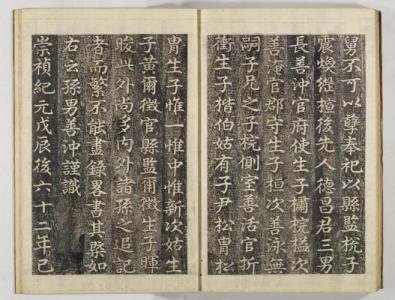 舅不可以孽奉祀以縣監梡子
震煥繼檀後先人德昌君三男
長善沖官府使生子橚梡楹次
善淹官郡守生子桓次善泳無
嗣子兄之子梡側室善活官折
衝生子楷伯姑有子尹松胄松
胄生子惟一惟中惟新次姑生
子黃爾徵官縣監甭徵生子暉
晙此外尚多內外諸孫之追記
者而繁不能盡錄畧書其槩如
右云孫男善沖謹識
崇禎紀元戊辰後六十二年己